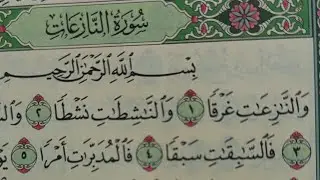 سُورَةُ النَّازِعَاتِ
بِسْمِ اللَّهِ الرَّحْمَٰنِ الرَّحِيمِ
وَالنَّازِعَاتِ غَرْقًا ١ وَالنَّاشِطَاتِ نَشْطًا ٢
فَالسَّابِقَاتِ سَبْقًا ٤ فَالْمُدَبِّرَاتِ أَمْرًا ٥